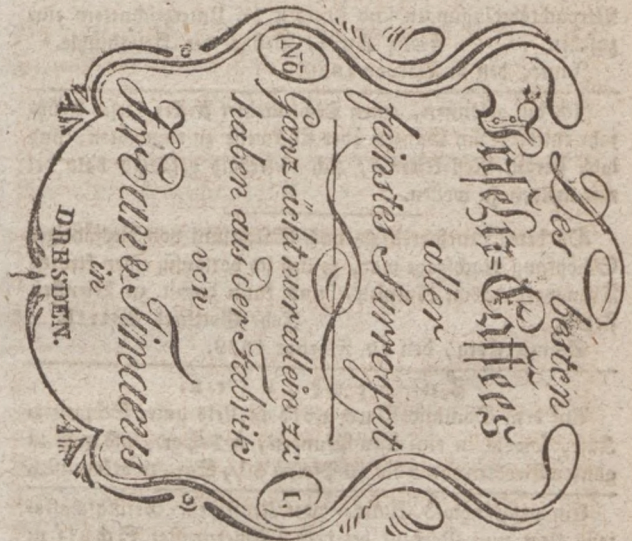 Des besten
Caffees
aller
feinstes Surrogat
No 1.
Ganz ächt nur allein zu
haben aus der Fabrik
von
Jordan & Timaeus
in
DRESDEN.